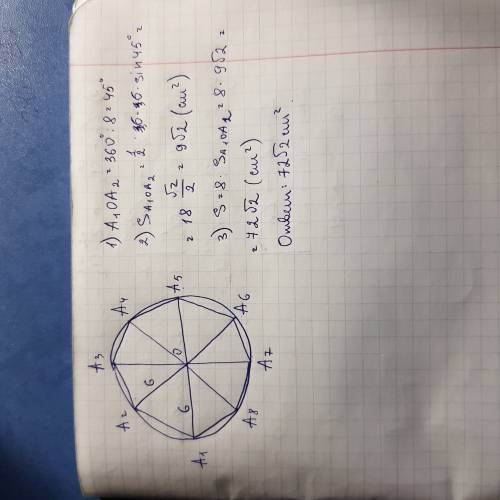 1) A1OA2 = 360° : 8 = 45°
2) SA1OA2 = 1/2 · 6 · 6 · sin 45° =
= 18 √2/2 = 9√2 (см²)
3) S = 8 · SA1OA2 = 8 · 9√2 =
= 72√2 (см²)
Ответ: 72√2 см².
A1
A2
A3
A4
A5
A6
A7
A8
O
6
6